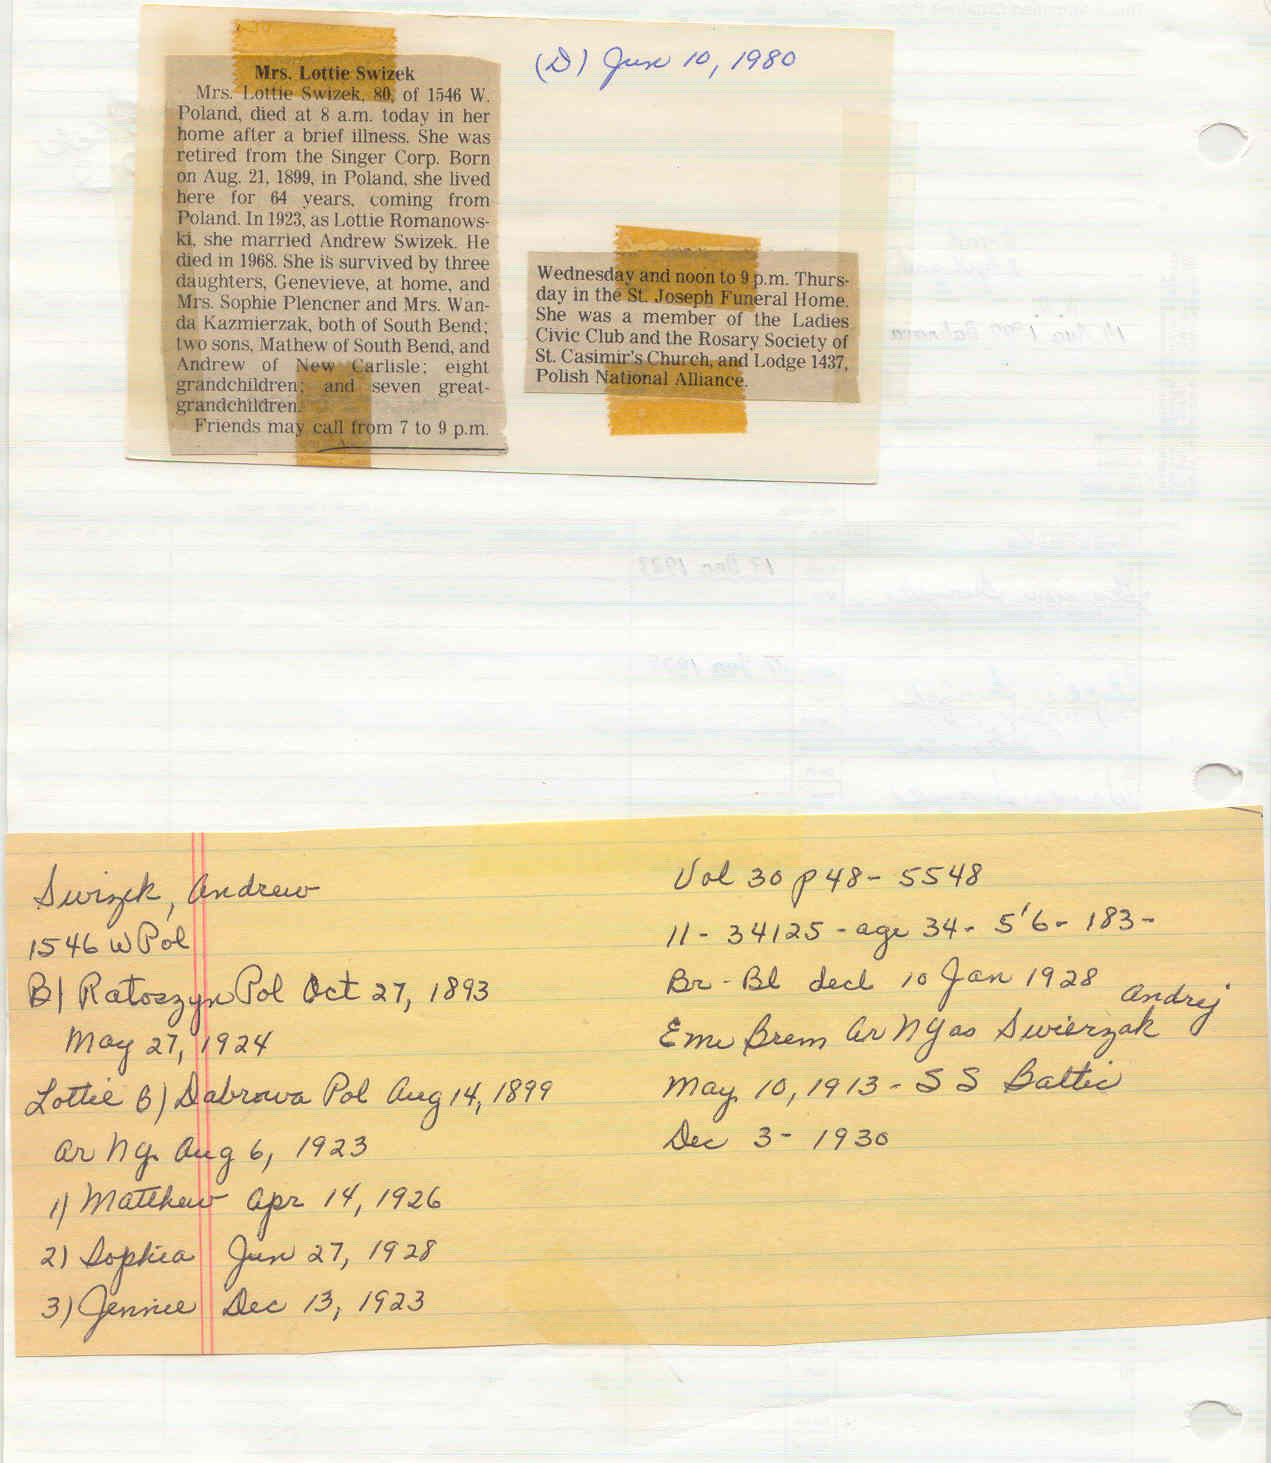 Mrs. Lottie Swizek
Mrs. Lottie Swizek, 80, of 1546 W.
Poland, died at 8 a.m. today in her
home after a brief illness. She was
retired from the Singer Corp. Born
on Aug. 21, 1899, in Poland, she lived
here for 64 years, coming from
Poland. In 1923, as Lottie Romanows-
ki, she married Andrew Swizek. He
died in 1968. She is survived by three
daughters, Genevieve, at home, and
Mrs. Sophie Plencner and Mrs. Wan-
da Kazmierzak, both of South Bend;
two sons, Mathew of South Bend, and
Andrew of New Carlisle; eight
grandchildren; and seven great-
grandchildren.
Friends may call from 7 to 9 p.m.
(D) Jun 10, 1980
Wednesday and noon to 9 p.m. Thurs-
day in the St. Joseph Funeral Home.
She was a member of the Ladies
Civic Club and the Rosary Society of
St. Casimir's Church, and Lodge 1437,
Polish National Alliance.
Swizek, Andrew
1546 W Pol
B) Ratoszyn Pol Oct 27, 1893
May 27, 1924
Lottie B) Dabrowa Pol Aug 14, 1899
ar NY Aug 6, 1923
1) Matthew Apr 14, 1926
2) Sophia Jun 27, 1928
3) Jennie Dec 13, 1923
Vol 30 p 48 - 5548
11 - 34125 - age 34 - 5'6 - 183 -
Br - Bl decl 10 Jan 1928
Andrej
Eme Brem ar NY as Swierzak
May 10, 1913 - S S Baltic
Dec 3 - 1930